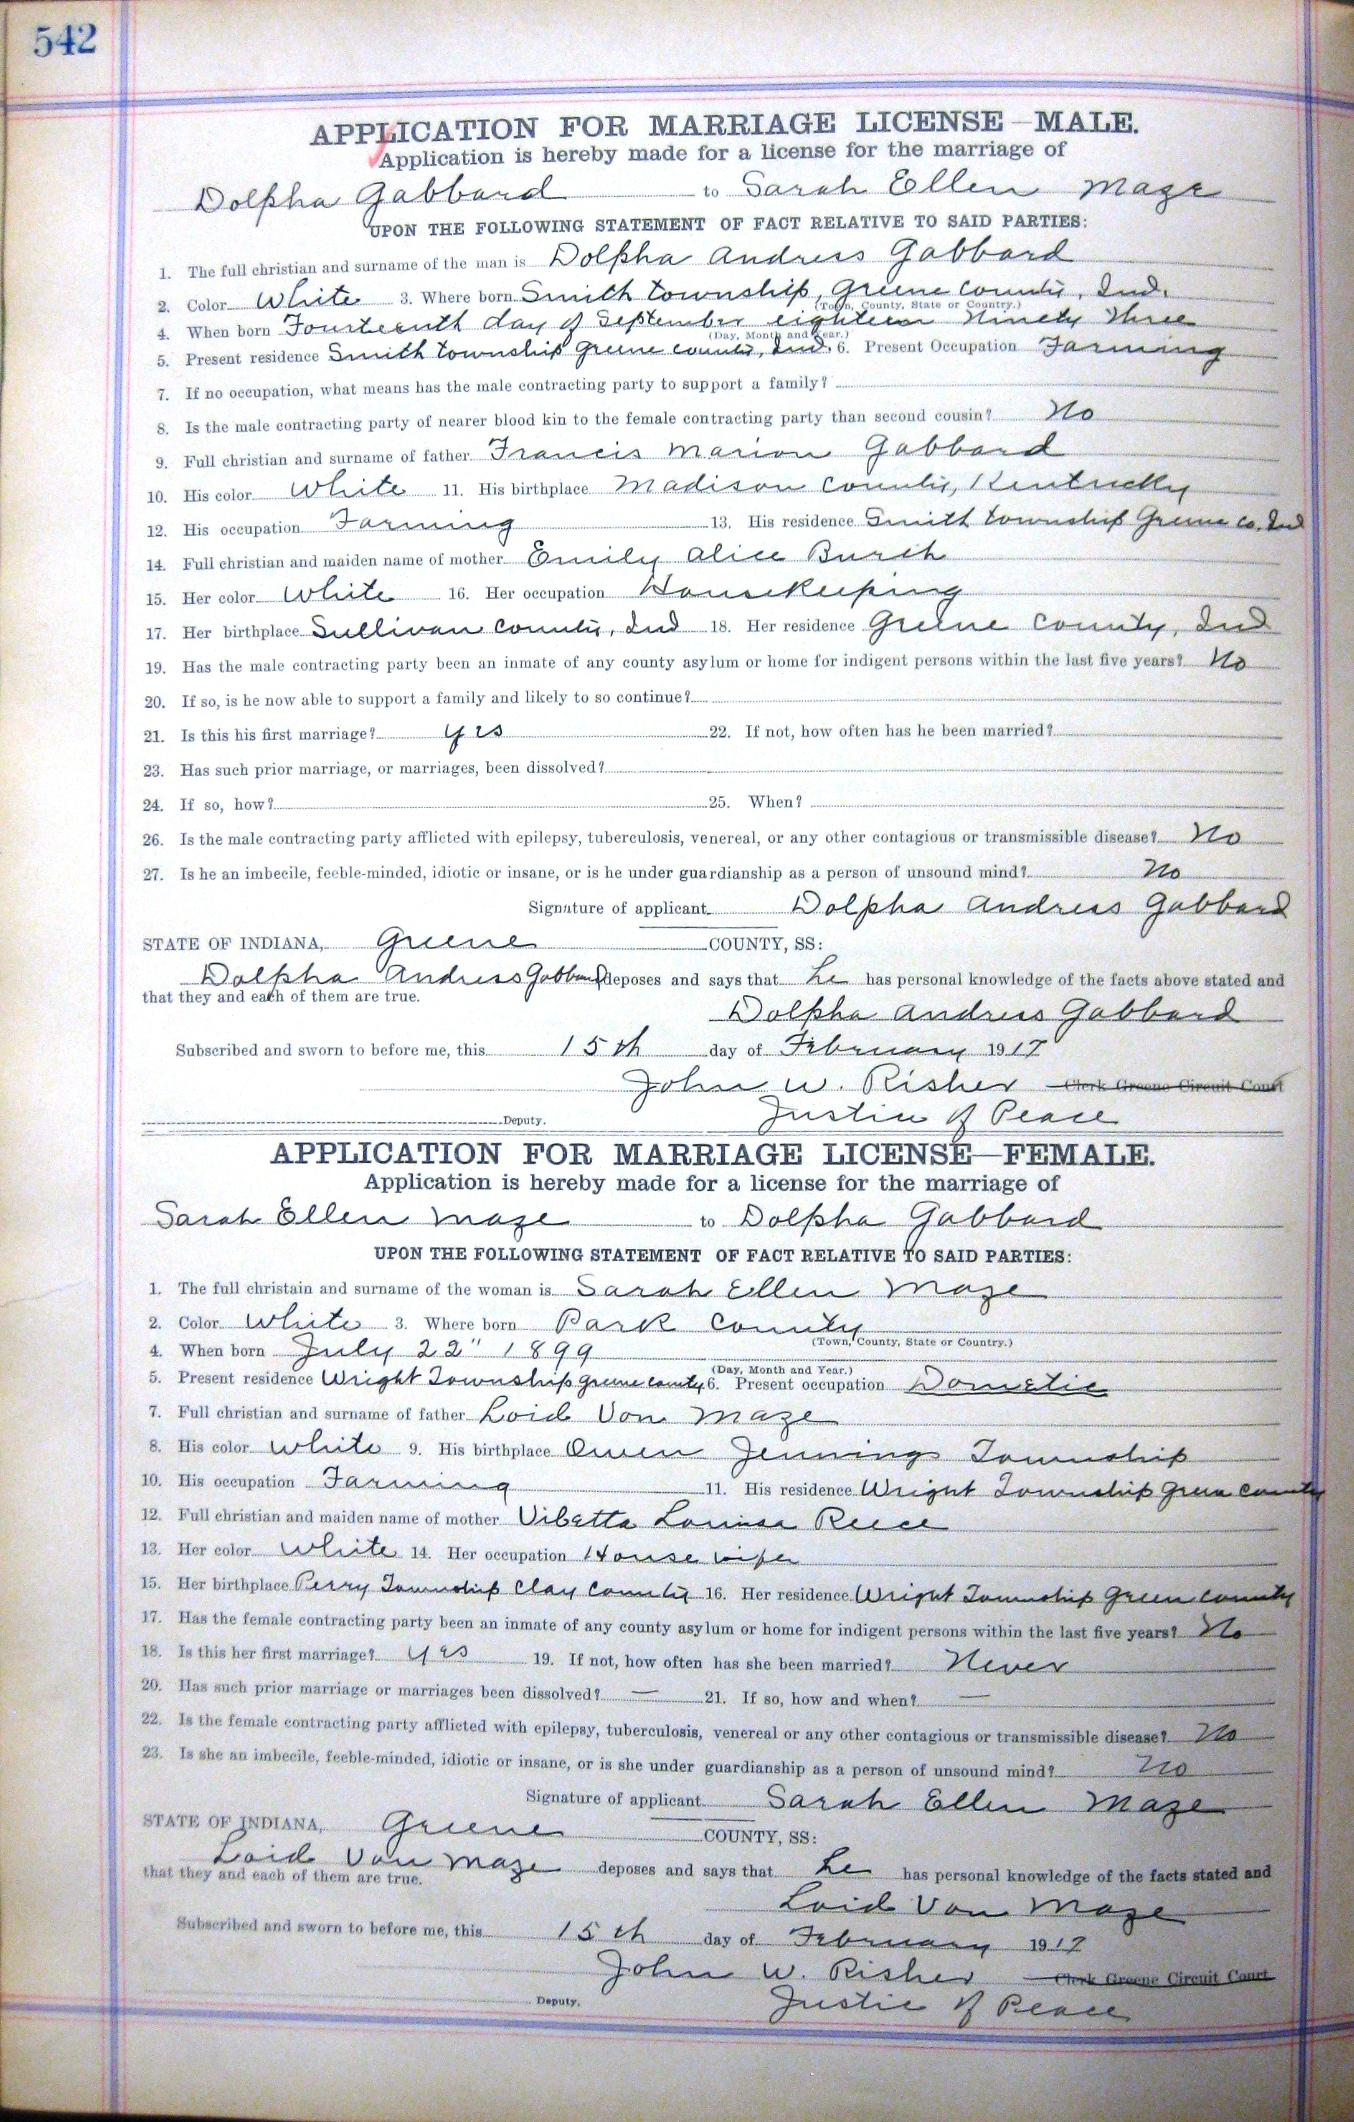 542
APPLICATION FOR MARRIAGE LICENSE—MALE.
Application is hereby made for a license for the marriage of
Dolpha Gabbard to Sarah Ellen Maze
UPON THE FOLLOWING STATEMENT OF FACT RELATIVE TO SAID PARTIES:
1. The full christian and surname of the man is Dolpha Andress Gabbard
2. Color White 3. Where born Smith township, Greene County, Ind.
(Town, County, State or Country.)
4. When born Fourteenth day of September eighteen Ninety Three
(Day, Month and Year.)
5. Present residence Smith township Greene county, Ind. 6. Present Occupation Farming
7. If no occupation, what means has the male contracting party to support a family?
8. Is the male contracting party of nearer blood kin to the female contracting party than second cousin? No
9. Full christian and surname of father Francis Marion Gabbard
10. His color White 11. His birthplace Madison County, Kentucky
12. His occupation Farming 13. His residence Smith township Greene Co. Ind
14. Full christian and maiden name of mother Emily Alice Burch
15. Her color White 16. Her occupation Housekeeping
17. Her birthplace Sullivan County, Ind 18. Her residence Greene County, Ind
19. Has the male contracting party been an inmate of any county asylum or home for indigent persons within the last five years? No
20. If so, is he now able to support a family and likely to so continue?
21. Is this his first marriage? yes 22. If not, how often has he been married?
23. Has such prior marriage, or marriages, been dissolved?
24. If so, how? 25. When?
26. Is the male contracting party afflicted with epilepsy, tuberculosis, venereal, or any other contagious or transmissible disease? No
27. Is he an imbecile, feeble-minded, idiotic or insane, or is he under guardianship as a person of unsound mind? No
Signature of applicant. Dolpha Andress Gabbard
STATE OF INDIANA, Greene COUNTY, SS:
Dolpha Andress Gabbard deposes and says that he has personal knowledge of the facts above stated and
that they and each of them are true.
Dolpha Andress Gabbard
Subscribed and sworn to before me, this 15th day of February 1917
John W. Risher Clerk Greene Circuit Court
Deputy. Justice of Peace
APPLICATION FOR MARRIAGE LICENSE—FEMALE.
Application is hereby made for a license for the marriage of
Sarah Ellen Maze to Dolpha Gabbard
UPON THE FOLLOWING STATEMENT OF FACT RELATIVE TO SAID PARTIES:
1. The full christain and surname of the woman is Sarah Ellen Maze
2. Color White 3. Where born Park County
(Town, County, State or Country.)
4. When born July 22" 1899
(Day, Month and Year.)
5. Present residence Wright Township greene county 6. Present occupation Dometic
7. Full christian and surname of father Loid Von Maze
8. His color White 9. His birthplace Owen Jennings Township
10. His occupation Farming 11. His residence Wright Township green county
12. Full christian and maiden name of mother Vibetta Louisa Reece
13. Her color White 14. Her occupation House wife
15. Her birthplace Perry Township Clay County 16. Her residence Wright Township Green county
17. Has the female contracting party been an inmate of any county asylum or home for indigent persons within the last five years? No
18. Is this her first marriage? Yes 19. If not, how often has she been married? Never
20. Has such prior marriage or marriages been dissolved? — 21. If so, how and when? —
22. Is the female contracting party afflicted with epilepsy, tuberculosis, venereal or any other contagious or transmissible disease? No
23. Is she an imbecile, feeble-minded, idiotic or insane, or is she under guardianship as a person of unsound mind? No
Signature of applicant. Sarah Ellen Maze
STATE OF INDIANA, Greene COUNTY, SS:
Loid Von Maze deposes and says that he has personal knowledge of the facts stated and
that they and each of them are true.
Loid Von Maze
Subscribed and sworn to before me, this 15th day of February 1917
John W. Risher Clerk Greene Circuit Court
Deputy. Justic of Peace